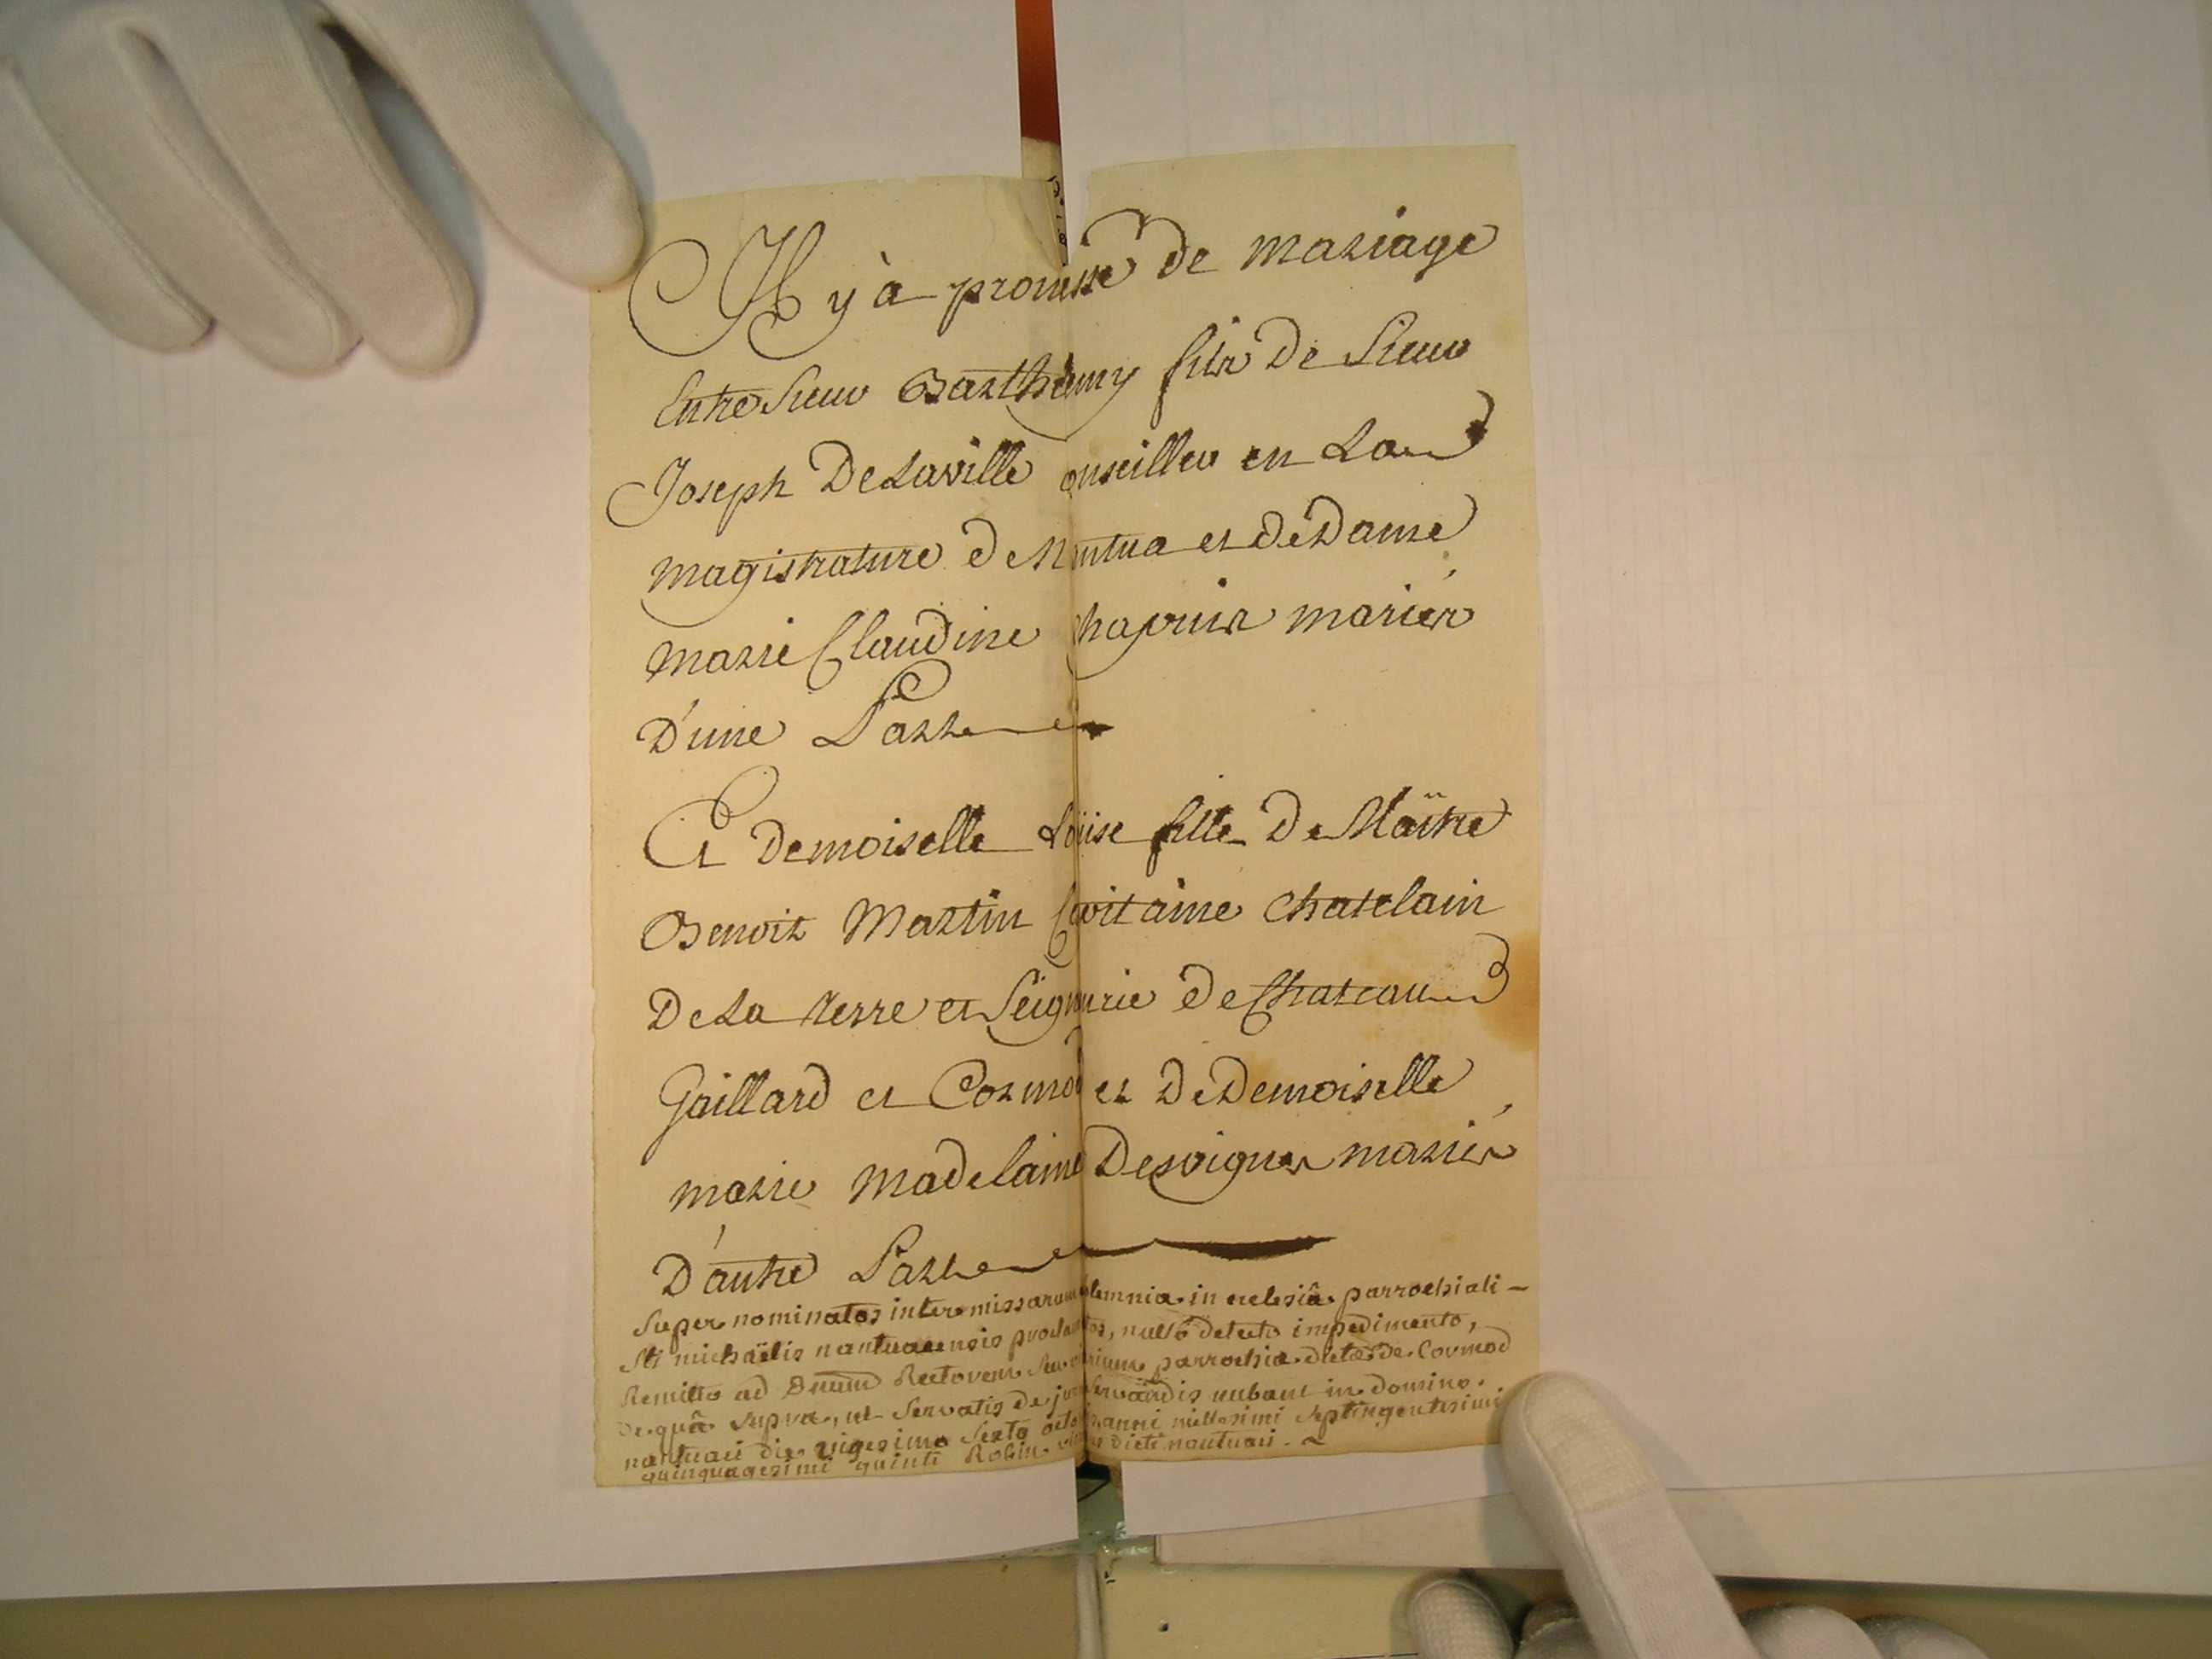 Il y à promesse de mariage
Entre Sieur Barthèmy fils de Sieur
Joseph DeLaville onseiller en La
magistrature de Nantua et de Dame
marie Claudine Chapuis mariés
D'une Part
Et Demoiselle Loüise fille De Maître
Benoit Martin Capitaine Chatelain
De La terre et Seigneurie de Chateau
Gaillard et Cormod et De Demoiselle
marie Madelaine Desvignes mariés
D'autre Part
Super nominatos inter missarum solemnia in eclesiâ parrochiali
Sti michaëlis nantuacensis proclamatos, nullo detecto impedimento,
Remitto ad Dnum Rectorem seu vicarium parrochiæ dictæ de Cormod
de quâ supra, ut servatis de jure servandis nubant in domino.
nantuaci die vigesima sexta octobris anni millesimi septingentesimi
quinquagesimi quinti Robin dicti nantuaci